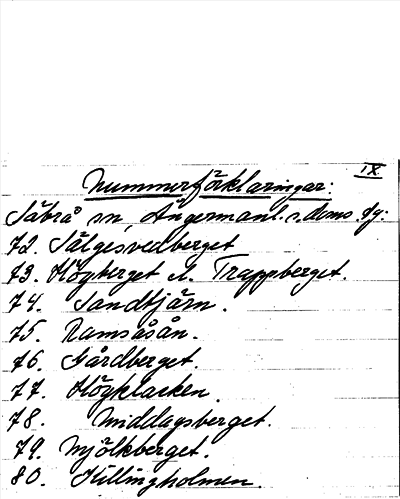 IX
Nummerförklaringar:
Säbrå sn, Ångermanl. s. doms. fg:
72. Sälgesvedberget
73. Högberget el. Trappberget.
74. Sandtjärn.
75. Ramsåsån.
76. Gårdberget.
77. Högklacken
78. Middagsberget.
79. Mjölkberget.
80. Killingholmen.